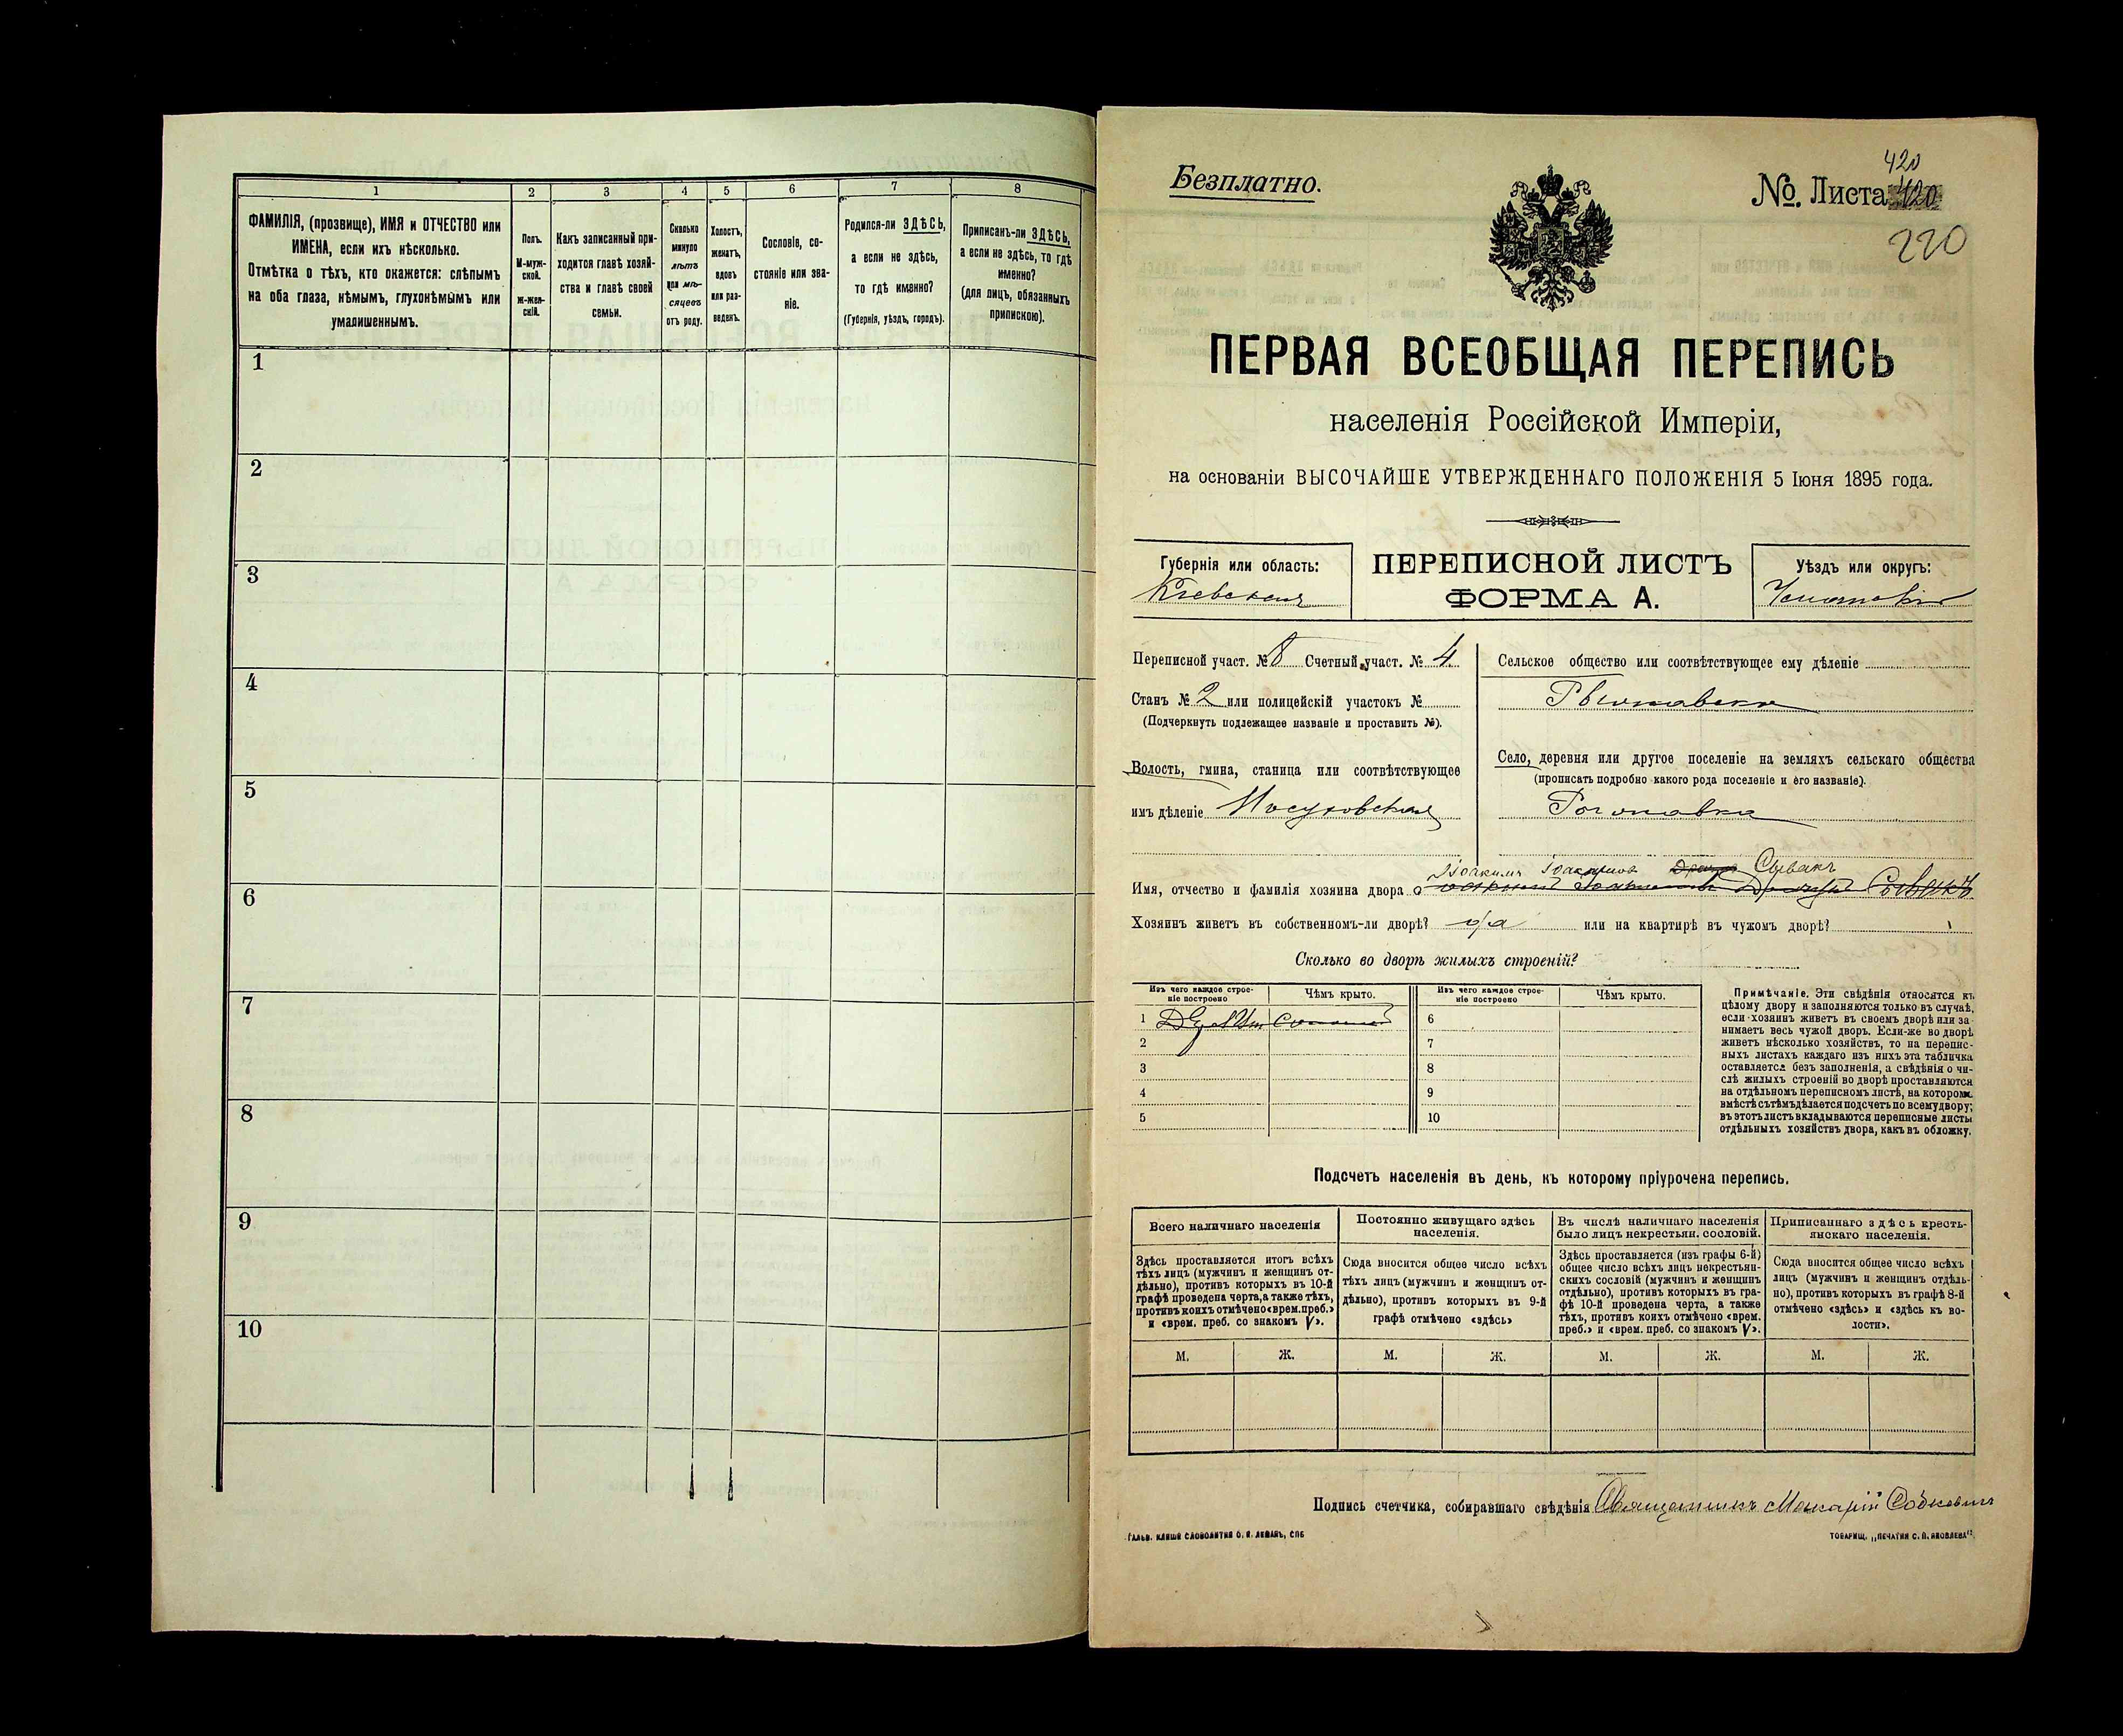 1 2 3 4 5 6 7 8
ФАМИЛІЯ, (прозвище), ИМЯ и ОТЧЕСТВО или
ИМЕНА, если ихъ нѣсколько.
Отмѣтка о тѣхъ, кто окажется: слѣпымъ
на оба глаза, нѣмымъ, глухонѣмымъ или
умалишеннымъ.
Полъ.
М-муж-
ской.
Ж-жен-
скій.
Какъ записанный при-
ходится главѣ хозяй-
ства и главѣ своей
семьи.
Сколько
минуло
лѣтъ
или мѣ-
сяцевъ
отъ роду.
Холостъ,
женатъ,
вдовъ
или раз-
веденъ.
Сословіе, со-
стояніе или зва-
ніе.
Родился-ли ЗДѢСЬ,
а если не здѣсь,
то гдѣ именно?
(Губернія, уѣздъ, городъ).
Приписанъ-ли ЗДѢСЬ,
а если не здѣсь, то гдѣ
именно?
(для лицъ, обязанныхъ
припискою).
1
2
3
4
5
6
7
8
9
10
420
Безплатно.
№. Листа 420
220
ПЕРВАЯ ВСЕОБЩАЯ ПЕРЕПИСЬ
населенія Россійской Имперіи,
на основаніи ВЫСОЧАЙШЕ УТВЕРЖДЕННАГО ПОЛОЖЕНІЯ 5 Іюня 1895 года.
Губернія или область:
Кіевская
ПЕРЕПИСНОЙ ЛИСТЪ
ФОРМА А.
Уѣздъ или округъ:
Переписной участ. № 8 Счетный участ. № 4
Станъ № 2 или полицейскій участокъ №
(Подчеркнуть подлежащее названіе и проставить №).
Волость, гмина, станица или соотвѣтствующее
имъ дѣленіе
Сельское общество или соотвѣтствующее ему дѣленіе
Село, деревня или другое поселеніе на земляхъ сельскаго общества
(прописать подробно какого рода поселеніе и его названіе).
Іоакимъ Іоакимовъ Сывакъ
Имя, отчество и фамилія хозяина двора
Хозяинъ живетъ въ собственномъ-ли дворѣ? да или на квартирѣ въ чужомъ дворѣ?
Сколько во дворѣ жилыхъ строеній?
Изъ чего каждое строе-
ніе построено
Чѣмъ крыто.
Изъ чего каждое строе-
ніе построено
Чѣмъ крыто.
1 6
2 7
3 8
4 9
5 10
Примѣчаніе. Эти свѣдѣнія относятся къ
цѣлому двору и заполняются только въ случаѣ,
если хозяинъ живетъ въ своемъ дворѣ или за-
нимаетъ весь чужой дворъ. Если-же во дворѣ
живетъ нѣсколько хозяйствъ, то на перепис-
ныхъ листахъ каждаго изъ нихъ эта табличка
оставляется безъ заполненія, а свѣдѣнія о чи-
слѣ жилыхъ строеній во дворѣ проставляются
на отдѣльномъ переписномъ листѣ, на которомъ
вмѣстѣ съ тѣмъ дѣлается подсчетъ по всему двору;
въ этотъ листъ вкладываются переписные листы
отдѣльныхъ хозяйствъ двора, какъ въ обложку.
Подсчетъ населенія въ день, къ которому пріурочена перепись.
Всего наличнаго населенія
Здѣсь проставляется итогъ всѣхъ
тѣхъ лицъ (мужчинъ и женщинъ от-
дѣльно), противъ которыхъ въ 10-й
графѣ проведена черта, а также тѣхъ,
противъ коихъ отмѣчено «врем. преб.»
и «врем. преб. со знакомъ V».
Постоянно живущаго здѣсь
населенія.
Сюда вносится общее число всѣхъ
тѣхъ лицъ (мужчинъ и женщинъ от-
дѣльно), противъ которыхъ въ 9-й
графѣ отмѣчено «здѣсь»
Въ числѣ наличнаго населенія
было лицъ некрестьян. сословій.
Здѣсь проставляется (изъ графы 6-й)
общее число всѣхъ лицъ некрестьян-
скихъ сословій (мужчинъ и женщинъ
отдѣльно), противъ которыхъ въ гра-
фѣ 10-й проведена черта, а также
тѣхъ, противъ коихъ отмѣчено «врем.
преб.» и «врем. преб. со знакомъ V».
Приписаннаго здѣсь кресть-
янскаго населенія.
Сюда вносится общее число всѣхъ
лицъ (мужчинъ и женщинъ отдѣль-
но), противъ которыхъ въ графѣ 8-й
отмѣчено «здѣсь» и «здѣсь къ во-
лости».
М. Ж. М. Ж. М. Ж. М. Ж.
Подпись счетчика, собиравшаго свѣдѣнія Священникъ Макарій
ГАЛЬВ. КЛИШЕ СЛОВОЛИТНИ О. И. ЛЕМАНЪ, СПБ
ТОВАРИЩ. „ПЕЧАТНЯ С. П. ЯКОВЛЕВА“.